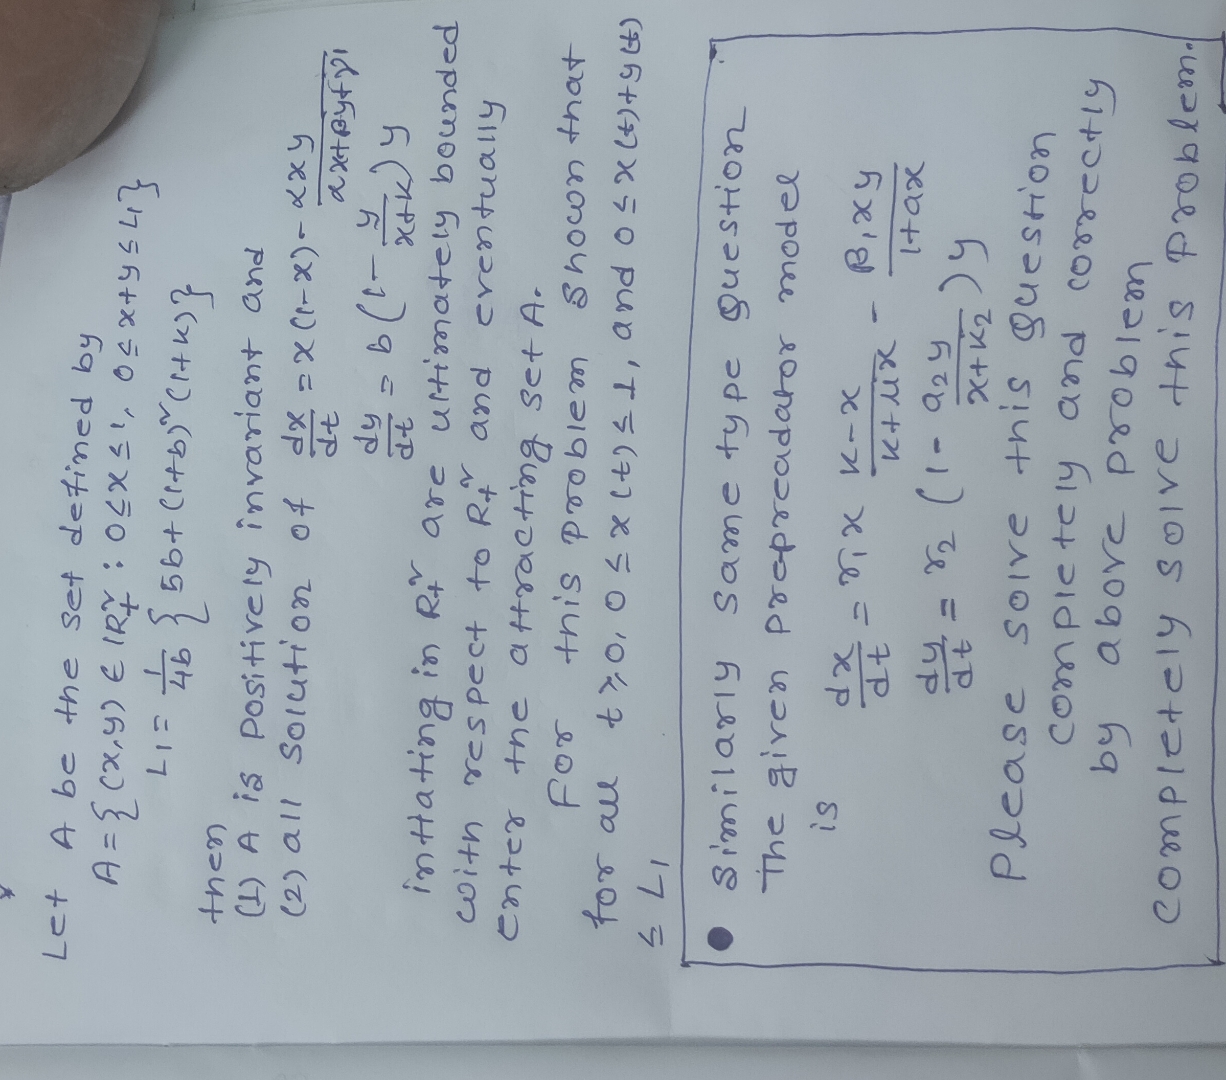 Let A be the set defined by
A = {(x,y) ∈ IR₊² : 0 ≤ x ≤ 1, 0 ≤ x+y ≤ L₁}
L₁ = 1/4b {5b + (1+b)² (1+k)}
then
(1) A is positively invariant and
(2) all solution of dx/dt = x(1-x) - αxy/ax+βy+γ1
dy/dt = b(1 - y/x+k)y
inttating in R₊² are ultimately bounded
with respect to R₊² and eventually
enter the attracting set A.
For this problem shown that
for all t ≥ 0, 0 ≤ x(t) ≤ 1, and 0 ≤ x(t)+y(t)
≤ L₁
• Similarly same type question
The given preypreadator model
is
dx/dt = r₁x k-x/k+μx - β₁xy/1+ax
dy/dt = r₂ (1 - a₂y/x+k₂)y
please solve this question
completely and correctly
by above problem
completely solve this problem.